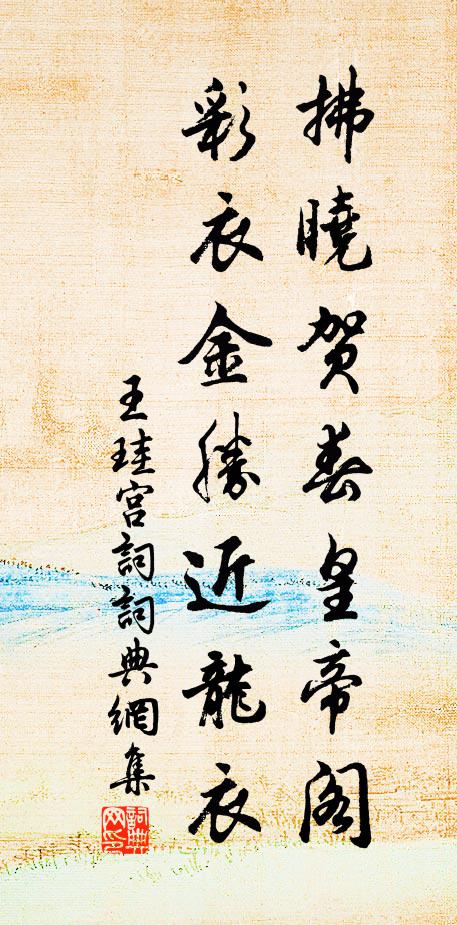 拂曉賀春皇帝阁
彩衣金勝近龍衣
王珪宫詞詞典網集
詞典网印